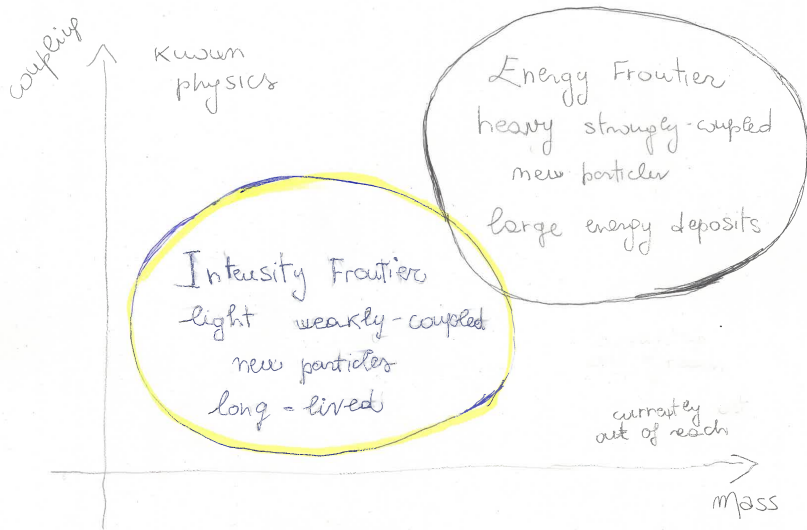 coupling
known
physics
Energy Frontier
heavy strongly-coupled
new particles
large energy deposits
Intensity Frontier
light weakly-coupled
new particles
long-lived
currently
out of reach
Mass